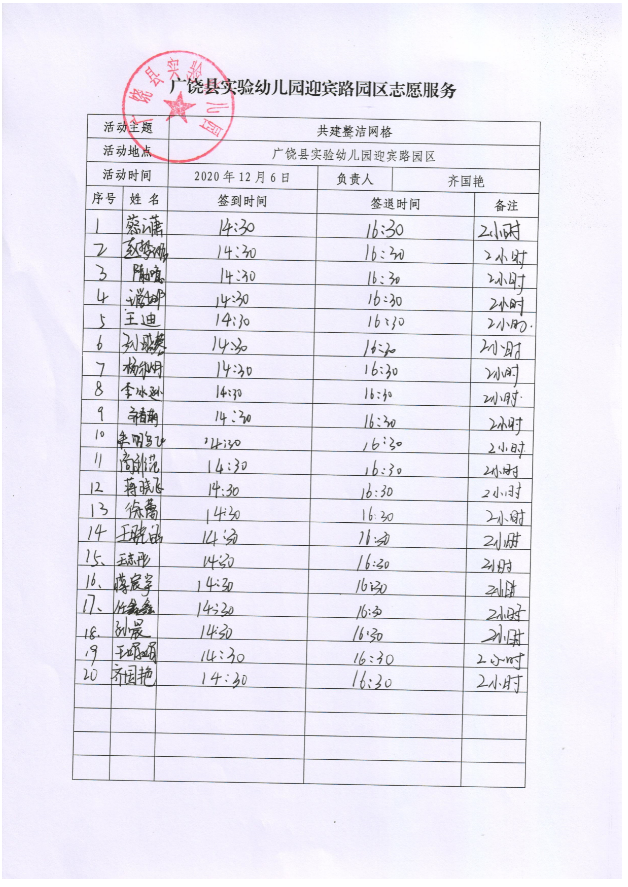 广饶县实验幼儿园迎宾路园区志愿服务
广饶县实验幼儿园
活动主题 共建整洁网格
活动地点 广饶县实验幼儿园迎宾路园区
活动时间 2020年12月6日 负责人 齐国艳
序号 姓名 签到时间 签退时间 备注
1 蔡潇 14:30 16:30 2小时
2 14:30 16:30 2小时
3 14:30 16:30 2小时
4 14:30 16:30 2小时
5 王迪 14:30 16:30 2小时.
6 14:30 16:30 2小时
7 14:30 16:30 2小时
8 14:30 16:30 2小时.
9 14:30 16:30 2小时
10 14:30 16:30 2小时
11 14:30 16:30 2小时
12 蒋晓飞 14:30 16:30 2小时
13 徐蕾 14:30 16:30 2小时
14 王晓函 14:30 16:30 2小时
15、 王志彤 14:30 16:30 2小时
16、 14:30 16:30 2小时
17、 任鑫鑫 14:30 16:30 2小时
18. 孙晨 14:30 16:30 2小时
19 王娟娟 14:30 16:30 2小时
20 齐国艳 14:30 16:30 2小时